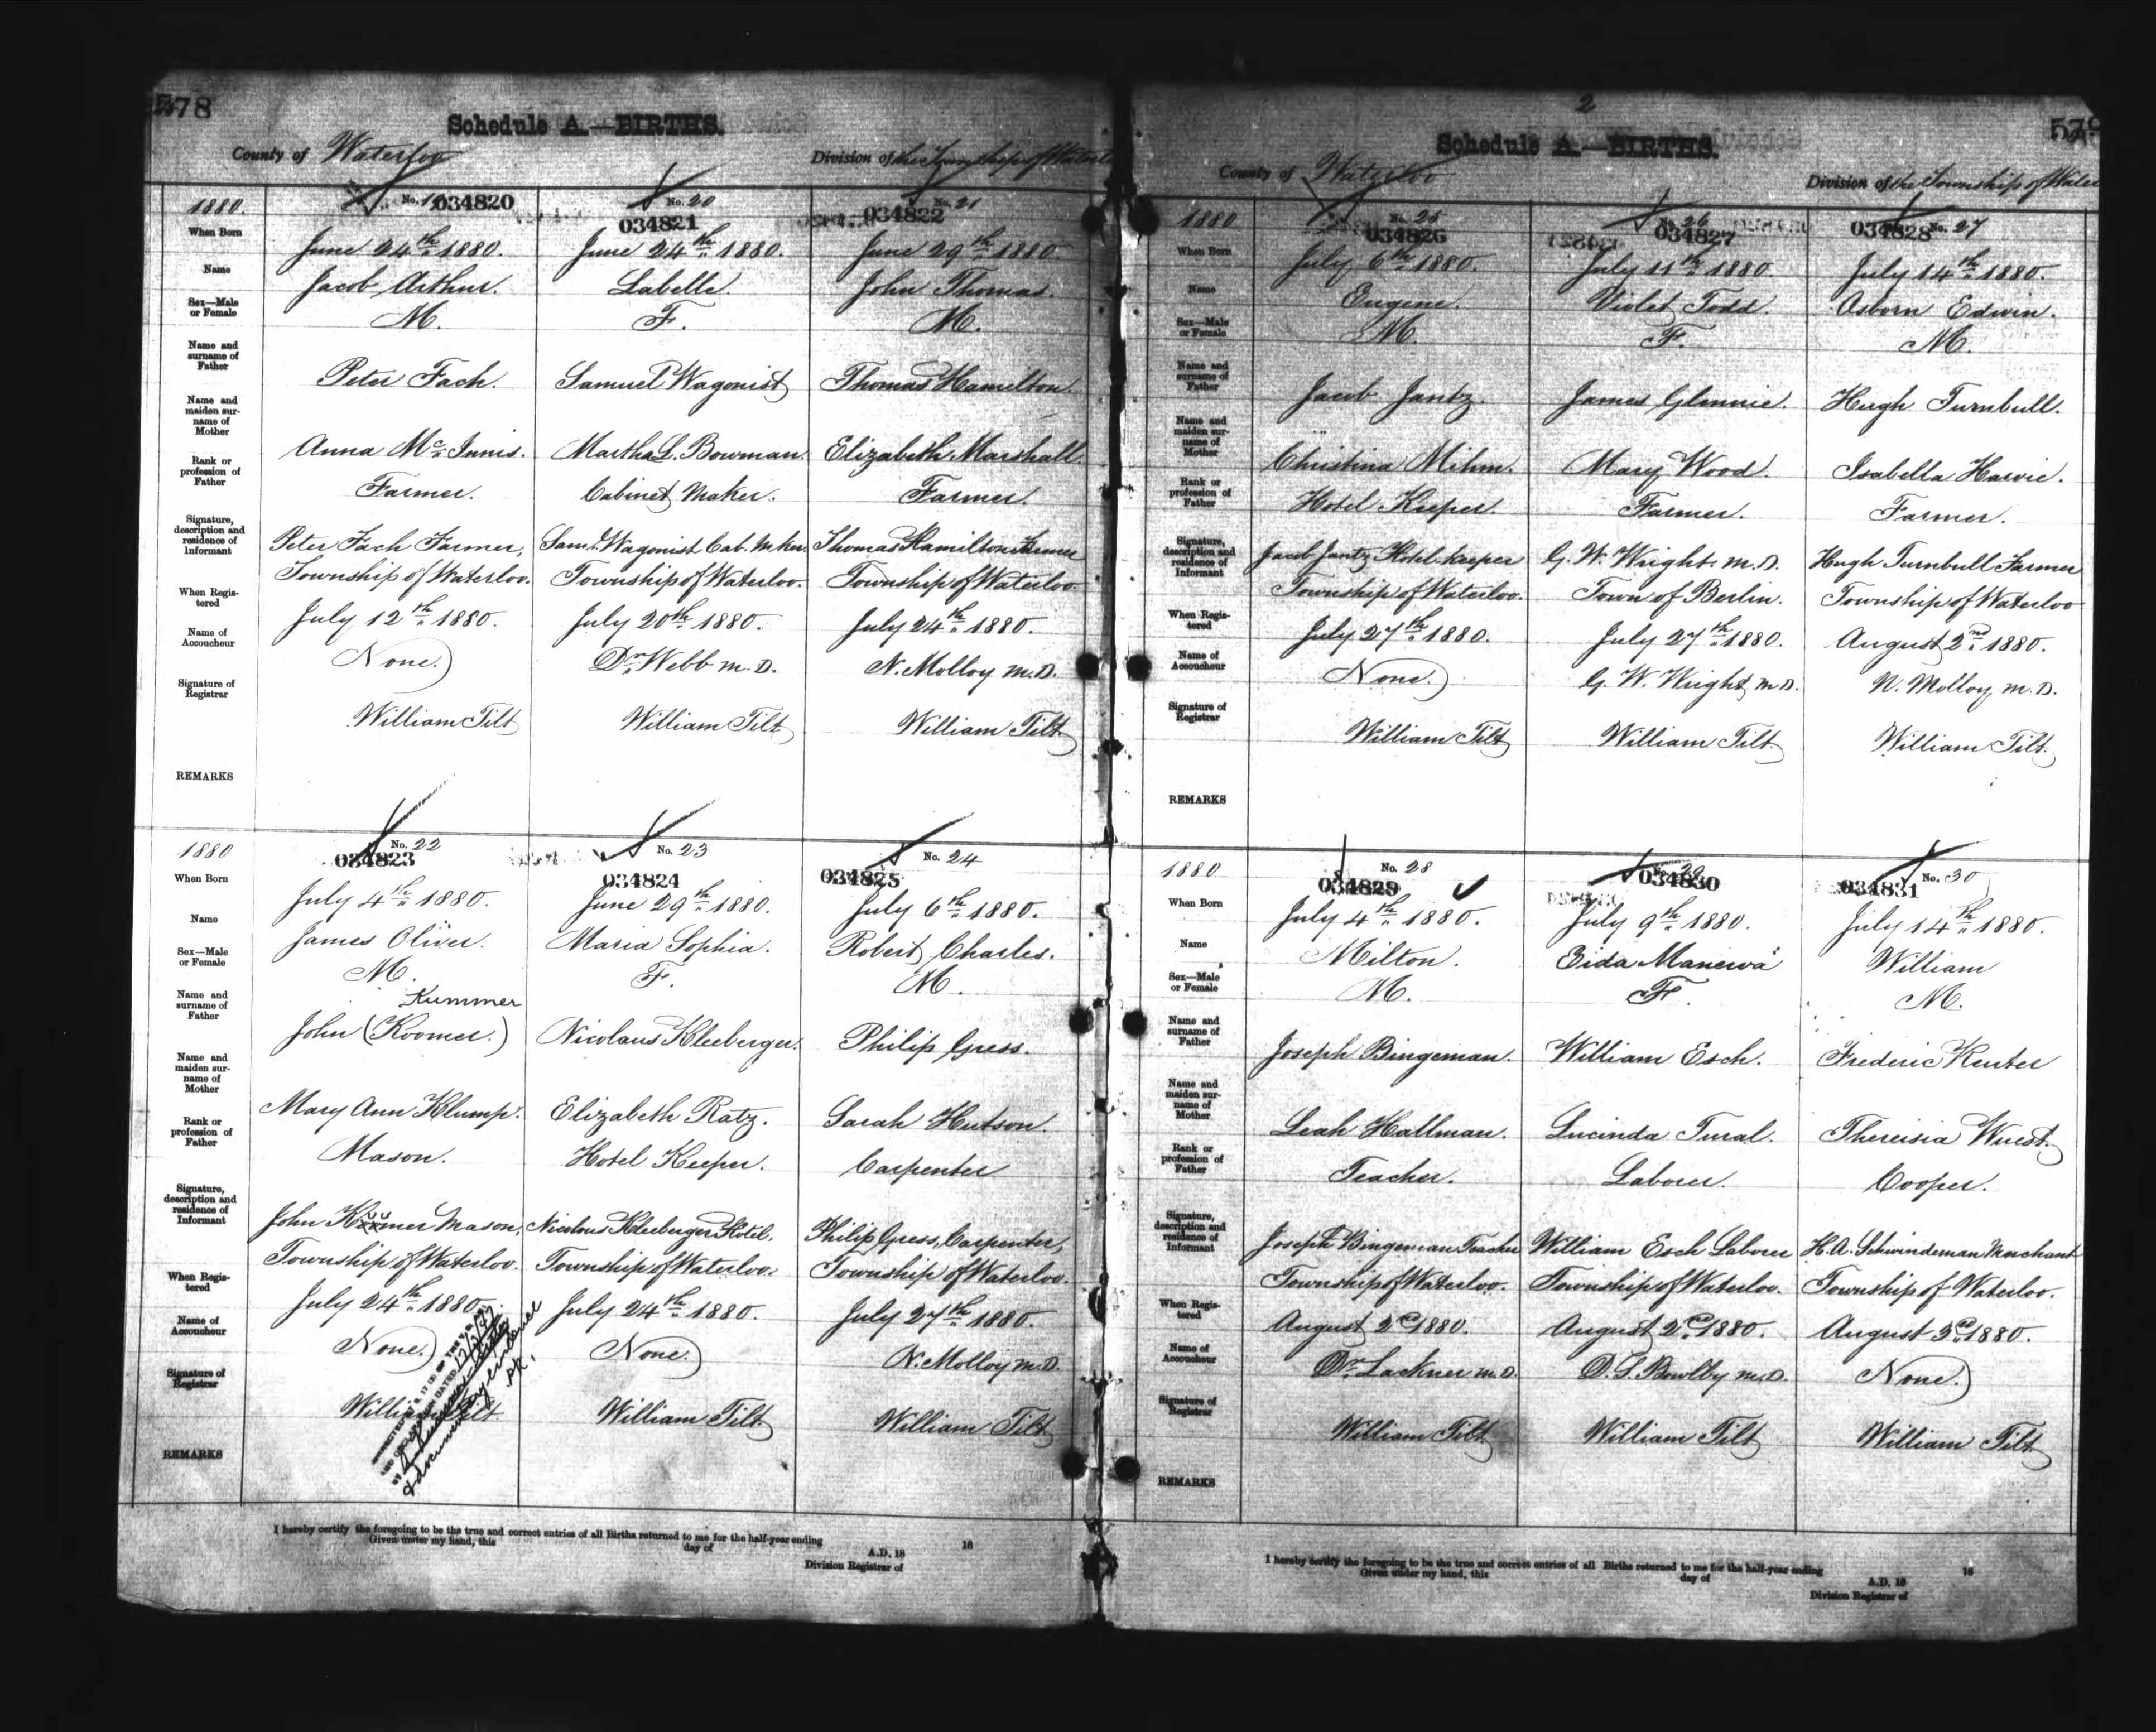 578
Schedule A.—BIRTHS.
County of Waterloo
Division of the Township of Waterloo
1880.
No. 19 034820
No. 20
034821
No. 21
034822
When Born
June 24th 1880.
June 24th 1880.
June 29th 1880
Name
Jacob Arthur.
Labelle.
John Thomas.
Sex—Male or Female
M.
F.
M.
Name and surname of Father
Peter Fach.
Samuel Wagonist
Thomas Hamilton.
Name and maiden surname of Mother
Anna McInnis.
Martha L. Bowman.
Elizabeth Marshall
Rank or profession of Father
Farmer.
Cabinet Maker.
Farmer.
Signature, description and residence of Informant
Peter Fach Farmer,
Township of Waterloo.
Saml. Wagonist Cab. Mker.
Township of Waterloo.
Thomas Hamilton Farmer
Township of Waterloo.
When Registered
July 12th 1880.
July 20th 1880.
July 24th 1880.
Name of Accoucheur
None.
Dr. Webb M.D.
N. Molloy M.D.
Signature of Registrar
William Tilt
William Tilt
William Tilt
REMARKS
1880
No. 22
034823
No. 23
034824
No. 24
034825
When Born
July 4th 1880.
June 29th 1880.
July 6th 1880.
Name
James Oliver.
Maria Sophia.
Robert Charles.
Sex—Male or Female
M.
F.
M.
Name and surname of Father
Kummer
John (Koomer.)
Nicolaus Kleeberger.
Philip Gress.
Name and maiden surname of Mother
Mary Ann Klump.
Elizabeth Ratz.
Sarah Hutson
Rank or profession of Father
Mason.
Hotel Keeper.
Carpenter
Signature, description and residence of Informant
John Mason,
Township of Waterloo.
Nicolaus Kleeberger Hotel.
Township of Waterloo.
Philip Gress, Carpenter,
Township of Waterloo.
When Registered
July 24th 1880
July 24th 1880.
July 27th 1880.
Name of Accoucheur
None.
None.
N. Molloy M.D.
Signature of Registrar
William Tilt
William Tilt
William Tilt
REMARKS
I hereby certify the foregoing to be the true and correct entries of all Births returned to me for the half-year ending 18
Given under my hand, this day of A.D. 18
Division Registrar of
2
579
Schedule A.—BIRTHS.
County of Waterloo
Division of the Township of Water
1880
No. 25
034826
No. 26
034827
034828 No. 27
When Born
July 6th 1880.
July 11th 1880.
July 14th 1880.
Name
Eugene.
Violet Todd.
Osborn Edwin.
Sex—Male or Female
M.
F.
M.
Name and surname of Father
Jacob Jantz.
James Glennie.
Hugh Turnbull.
Name and maiden surname of Mother
Christina Mihm.
Mary Wood.
Isabella Harvie.
Rank or profession of Father
Hotel Keeper.
Farmer.
Farmer.
Signature, description and residence of Informant
Jacob Jantz Hotel-keeper
Township of Waterloo.
G. W. Wright. M.D.
Town of Berlin.
Hugh Turnbull Farmer
Township of Waterloo
When Registered
July 27th 1880.
July 27th 1880.
August 2nd 1880.
Name of Accoucheur
None.
G. W. Wright M.D.
N. Molloy M.D.
Signature of Registrar
William Tilt
William Tilt
William Tilt.
REMARKS
1880
No. 28
034829
No. 29
034830
034831 No. 30
When Born
July 4th 1880.
July 9th 1880.
July 14th 1880.
Name
Milton.
Zida Manerva
William
Sex—Male or Female
M.
F.
M.
Name and surname of Father
Joseph Bingeman.
William Esch.
Frederic Kenter
Name and maiden surname of Mother
Leah Hallman.
Lucinda Tural.
Thereisia Wuest.
Rank or profession of Father
Teacher.
Laborer.
Cooper.
Signature, description and residence of Informant
Joseph Bingeman Teacher
Township of Waterloo.
William Esch Laborer
Township of Waterloo.
H. A. Schwindeman Merchant
Township of Waterloo.
When Registered
August 2d 1880.
August 2d 1880.
August 3d 1880.
Name of Accoucheur
Dr. Lackner M.D.
D. S. Bowlby M.D.
None.
Signature of Registrar
William Tilt
William Tilt
William Tilt
REMARKS
I hereby certify the foregoing to be the true and correct entries of all Births returned to me for the half-year ending 18
Given under my hand, this day of A.D. 18
Division Registrar of